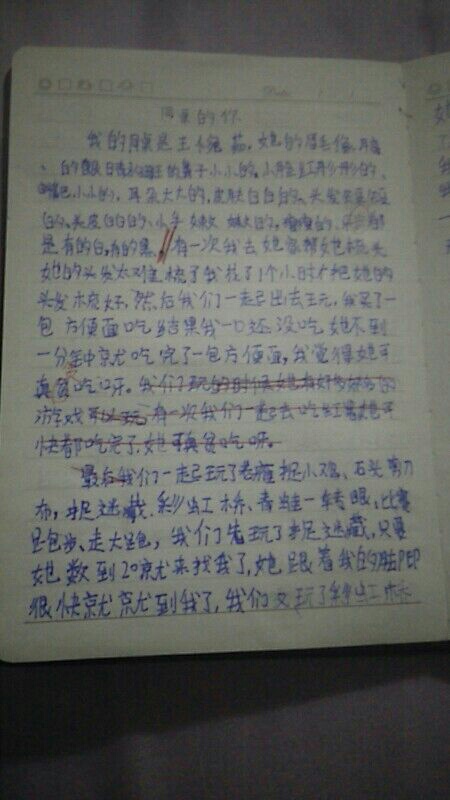 Date
同桌的你
我的同桌是王 茹，她的眉毛像
的眼睛 的鼻子小小的，小脸红彤彤的，
嘴巴小小的，耳朵大大的，皮肤白白的，头发
的，头皮白白的，小手嫩嫩的，瘦瘦的，
是有的白，有的黑，有一次我去她家帮她梳头
她的头发太难梳了我花了1个小时才把她的
头发梳好，然后我们一起出去玩，我买了一
包方便面吃结果我一口还没吃她不到
一分钟就吃完了一包方便面，我觉得她可
真贪吃呀。我们玩的时候她有好多好多的
游戏可以玩，有一次我们一起去吃红薯她可
快都吃完了，她可真贪吃呀。
最后我们一起玩了老鹰捉小鸡、石头剪刀
布，捉迷藏、彩虹桥、青蛙一转眼，比赛
跑步、走大路，我们先玩了捉迷藏，只要
她数到20就来找我了，她跟着我的脚印
很快就就到我了，我们又玩了彩虹桥